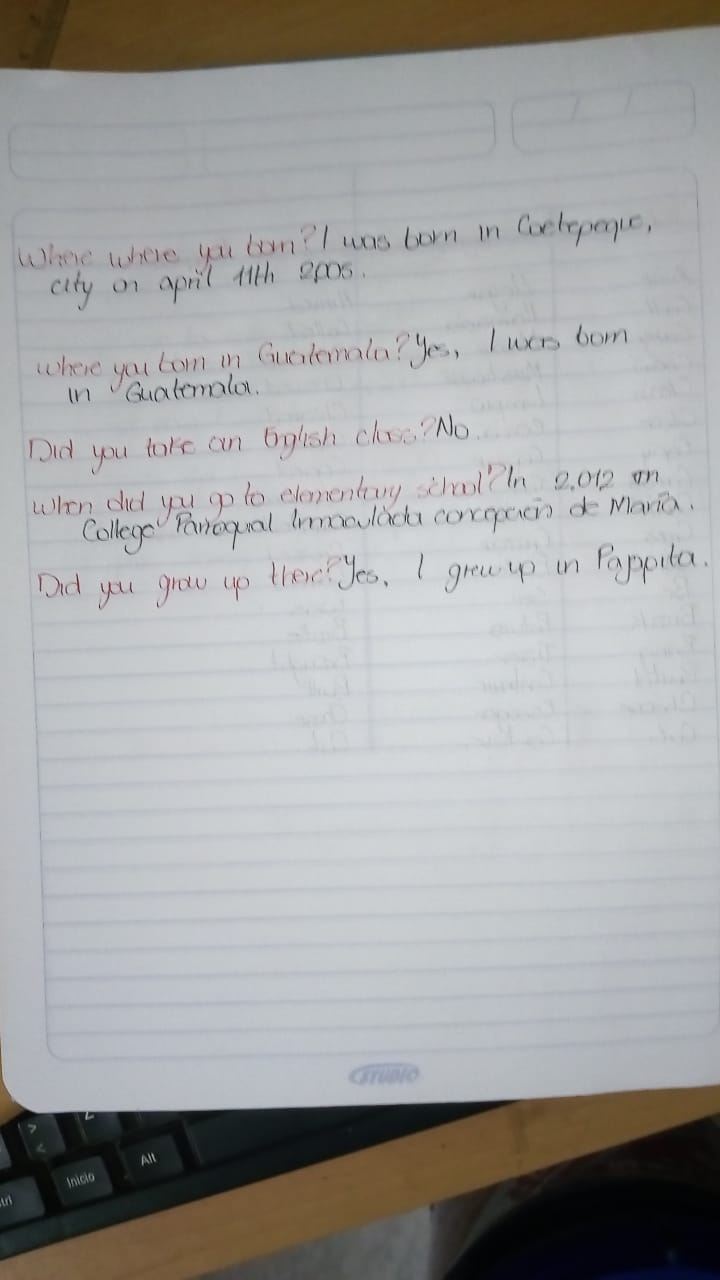 Where where you born? I was born in Coatepeque,
city on april 11th 2005.
where you born in Guatemala? Yes, I was born
in Guatemala.
Did you take an English class? No.
when did you go to elementary school? In 2.012 on
College Parroquial Inmaculada concepción de María.
Did you grow up there? Yes, I grew up in Pajapita.
STUDIO
Inicio
Alt